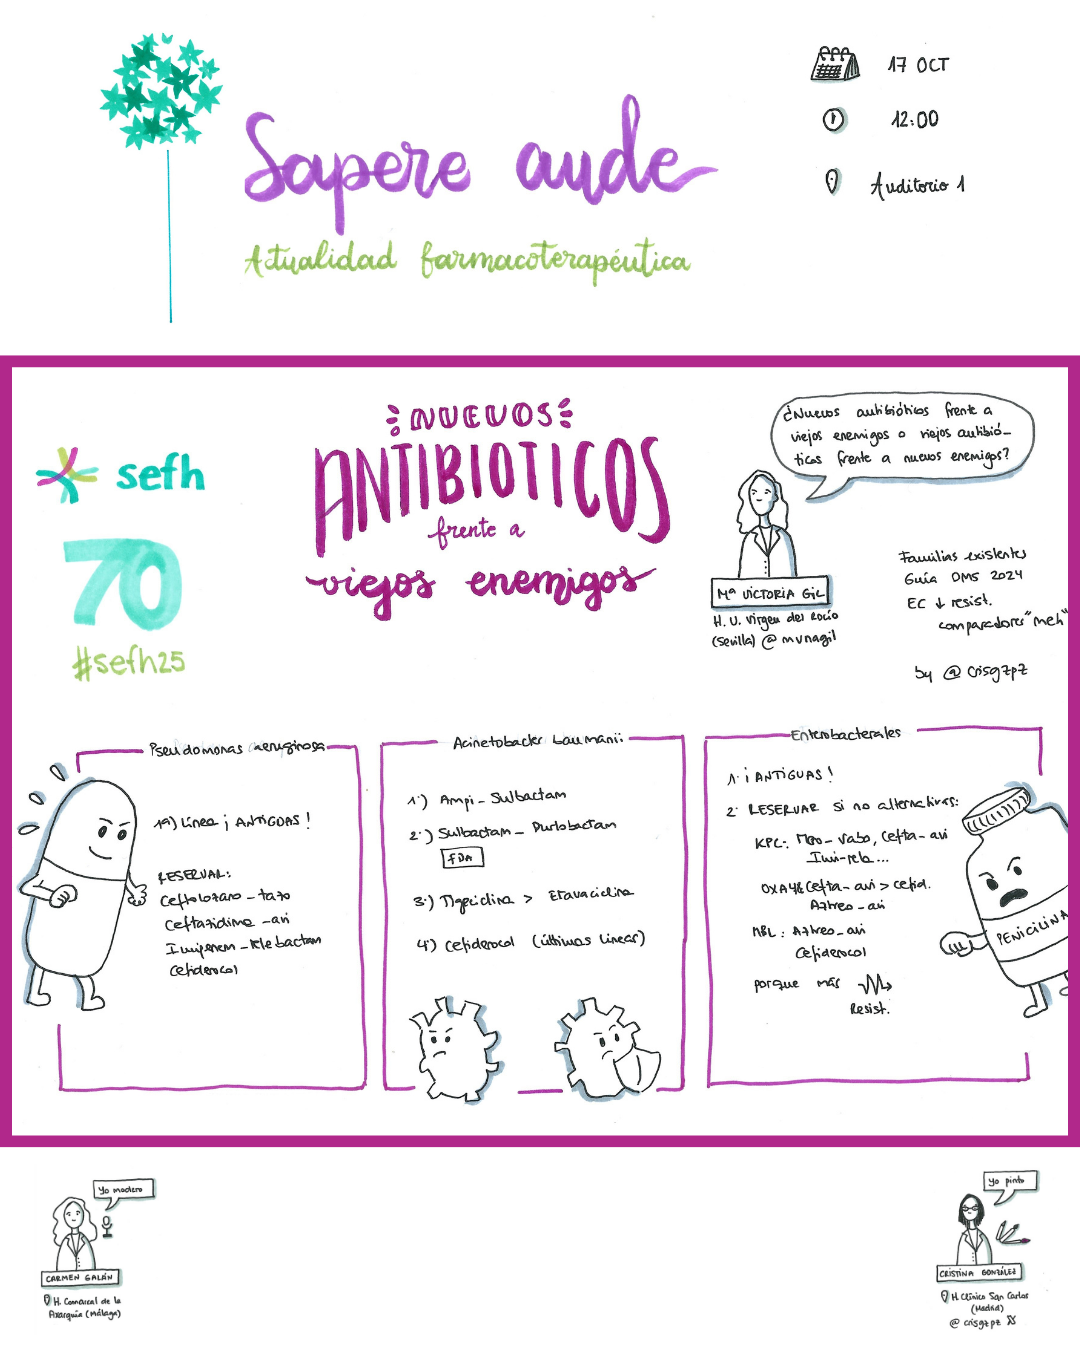 Sapere aude
Actualidad farmacoterapéutica
17 OCT
12:00
Auditorio 1
sefh
70
#sefh25
NUEVOS
ANTIBIOTICOS
frente a
viejos enemigos
¿Nuevos antibióticos frente a
viejos enemigos o viejos antibió-
ticos frente a nuevos enemigos?
Mª VICTORIA GIL
H. U. Virgen del Rocío
(Sevilla) @mvnagil
Familias existentes
Guía OMS 2024
EC ↓ resist.
comparadores "meh"
by @crisgzpz
Pseudomonas aeruginosa
1ª) Línea ¡ANTIGUAS!
RESERVAR:
Ceftolozano-tazo
Ceftazidima-avi
Imipenem-relebactam
Cefiderocol
Acinetobacter baumanii
1º) Ampi-Sulbactam
2º) Sulbactam-Durlobactam
FDA
3º) Tigeciclina > Eravaciclina
4º) Cefiderocol (últimas líneas)
Enterobacterales
1· ¡ANTIGUAS!
2· RESERVAR si no alternativas:
KPC: Mero-vabo, Cefta-avi
Imi-rele...
OXA48 Cefta-avi > cefid.
Aztreo-avi
MBL: Aztreo-avi
Cefiderocol
porque más
Resist.
PENICILINA
Yo modero
CARMEN GALÁN
H. Comarcal de la
Axarquía (Málaga)
Yo pinto
CRISTINA GONZÁLEZ
H. Clínico San Carlos
(Madrid)
@crisgzpz